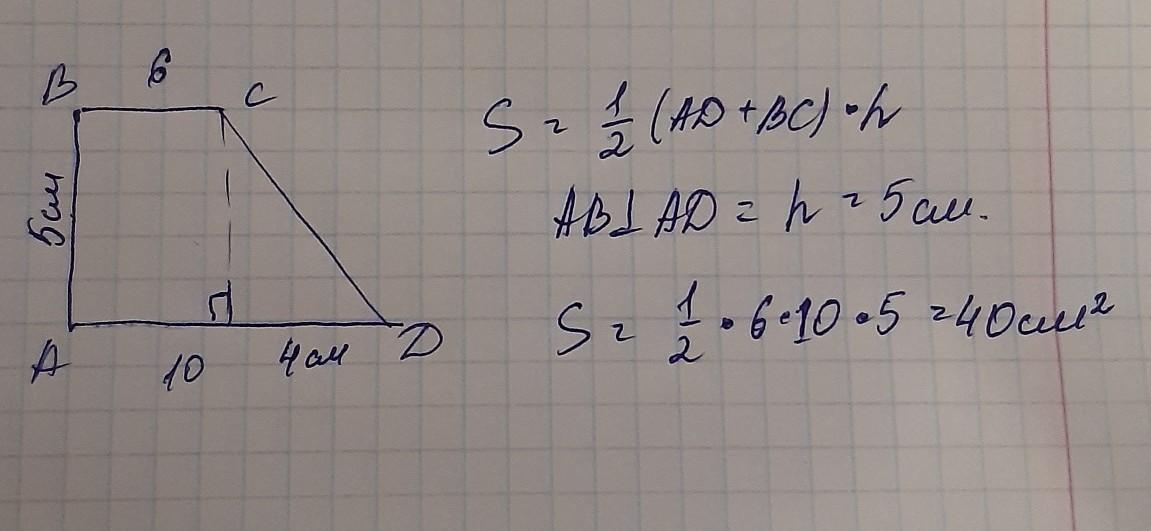 B 6 C
5см
A 10 4см D
S = 1/2 (AD + BC) · h
AB ⊥ AD = h = 5см.
S = 1/2 · 6 · 10 · 5 = 40см²